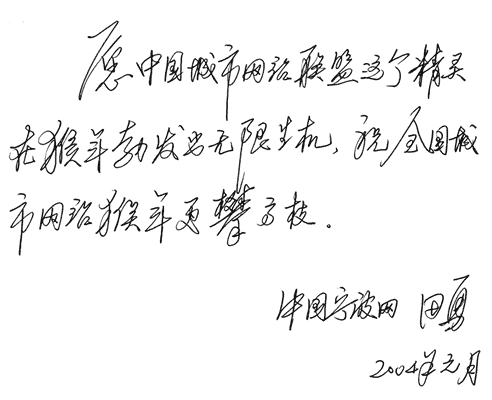 愿中国城市网站联盟这个精灵
在猴年勃发出无限生机，祝全国城
市网站猴年更攀高枝．
中国宁波网 田勇
2004年元月